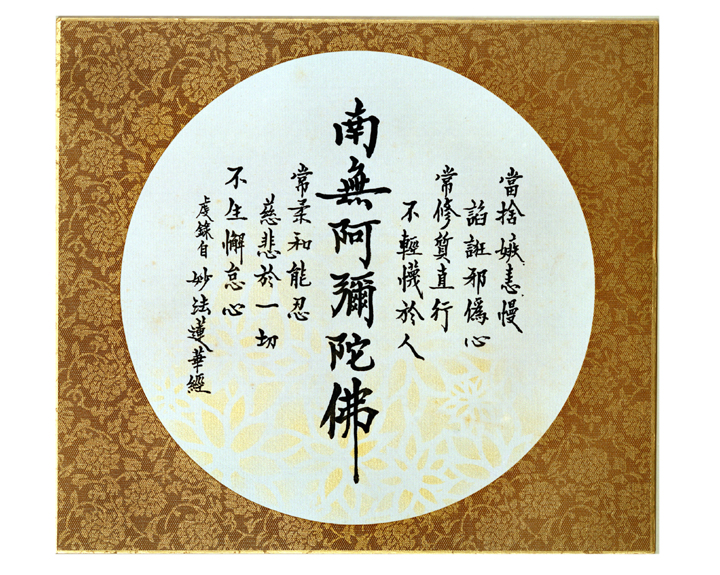 當捨嫉恚慢
諂誑邪僞心
常修質直行
不輕懱於人
南無阿彌陀佛
常柔和能忍
慈悲於一切
不生懈怠心
虔錄自妙法蓮華經